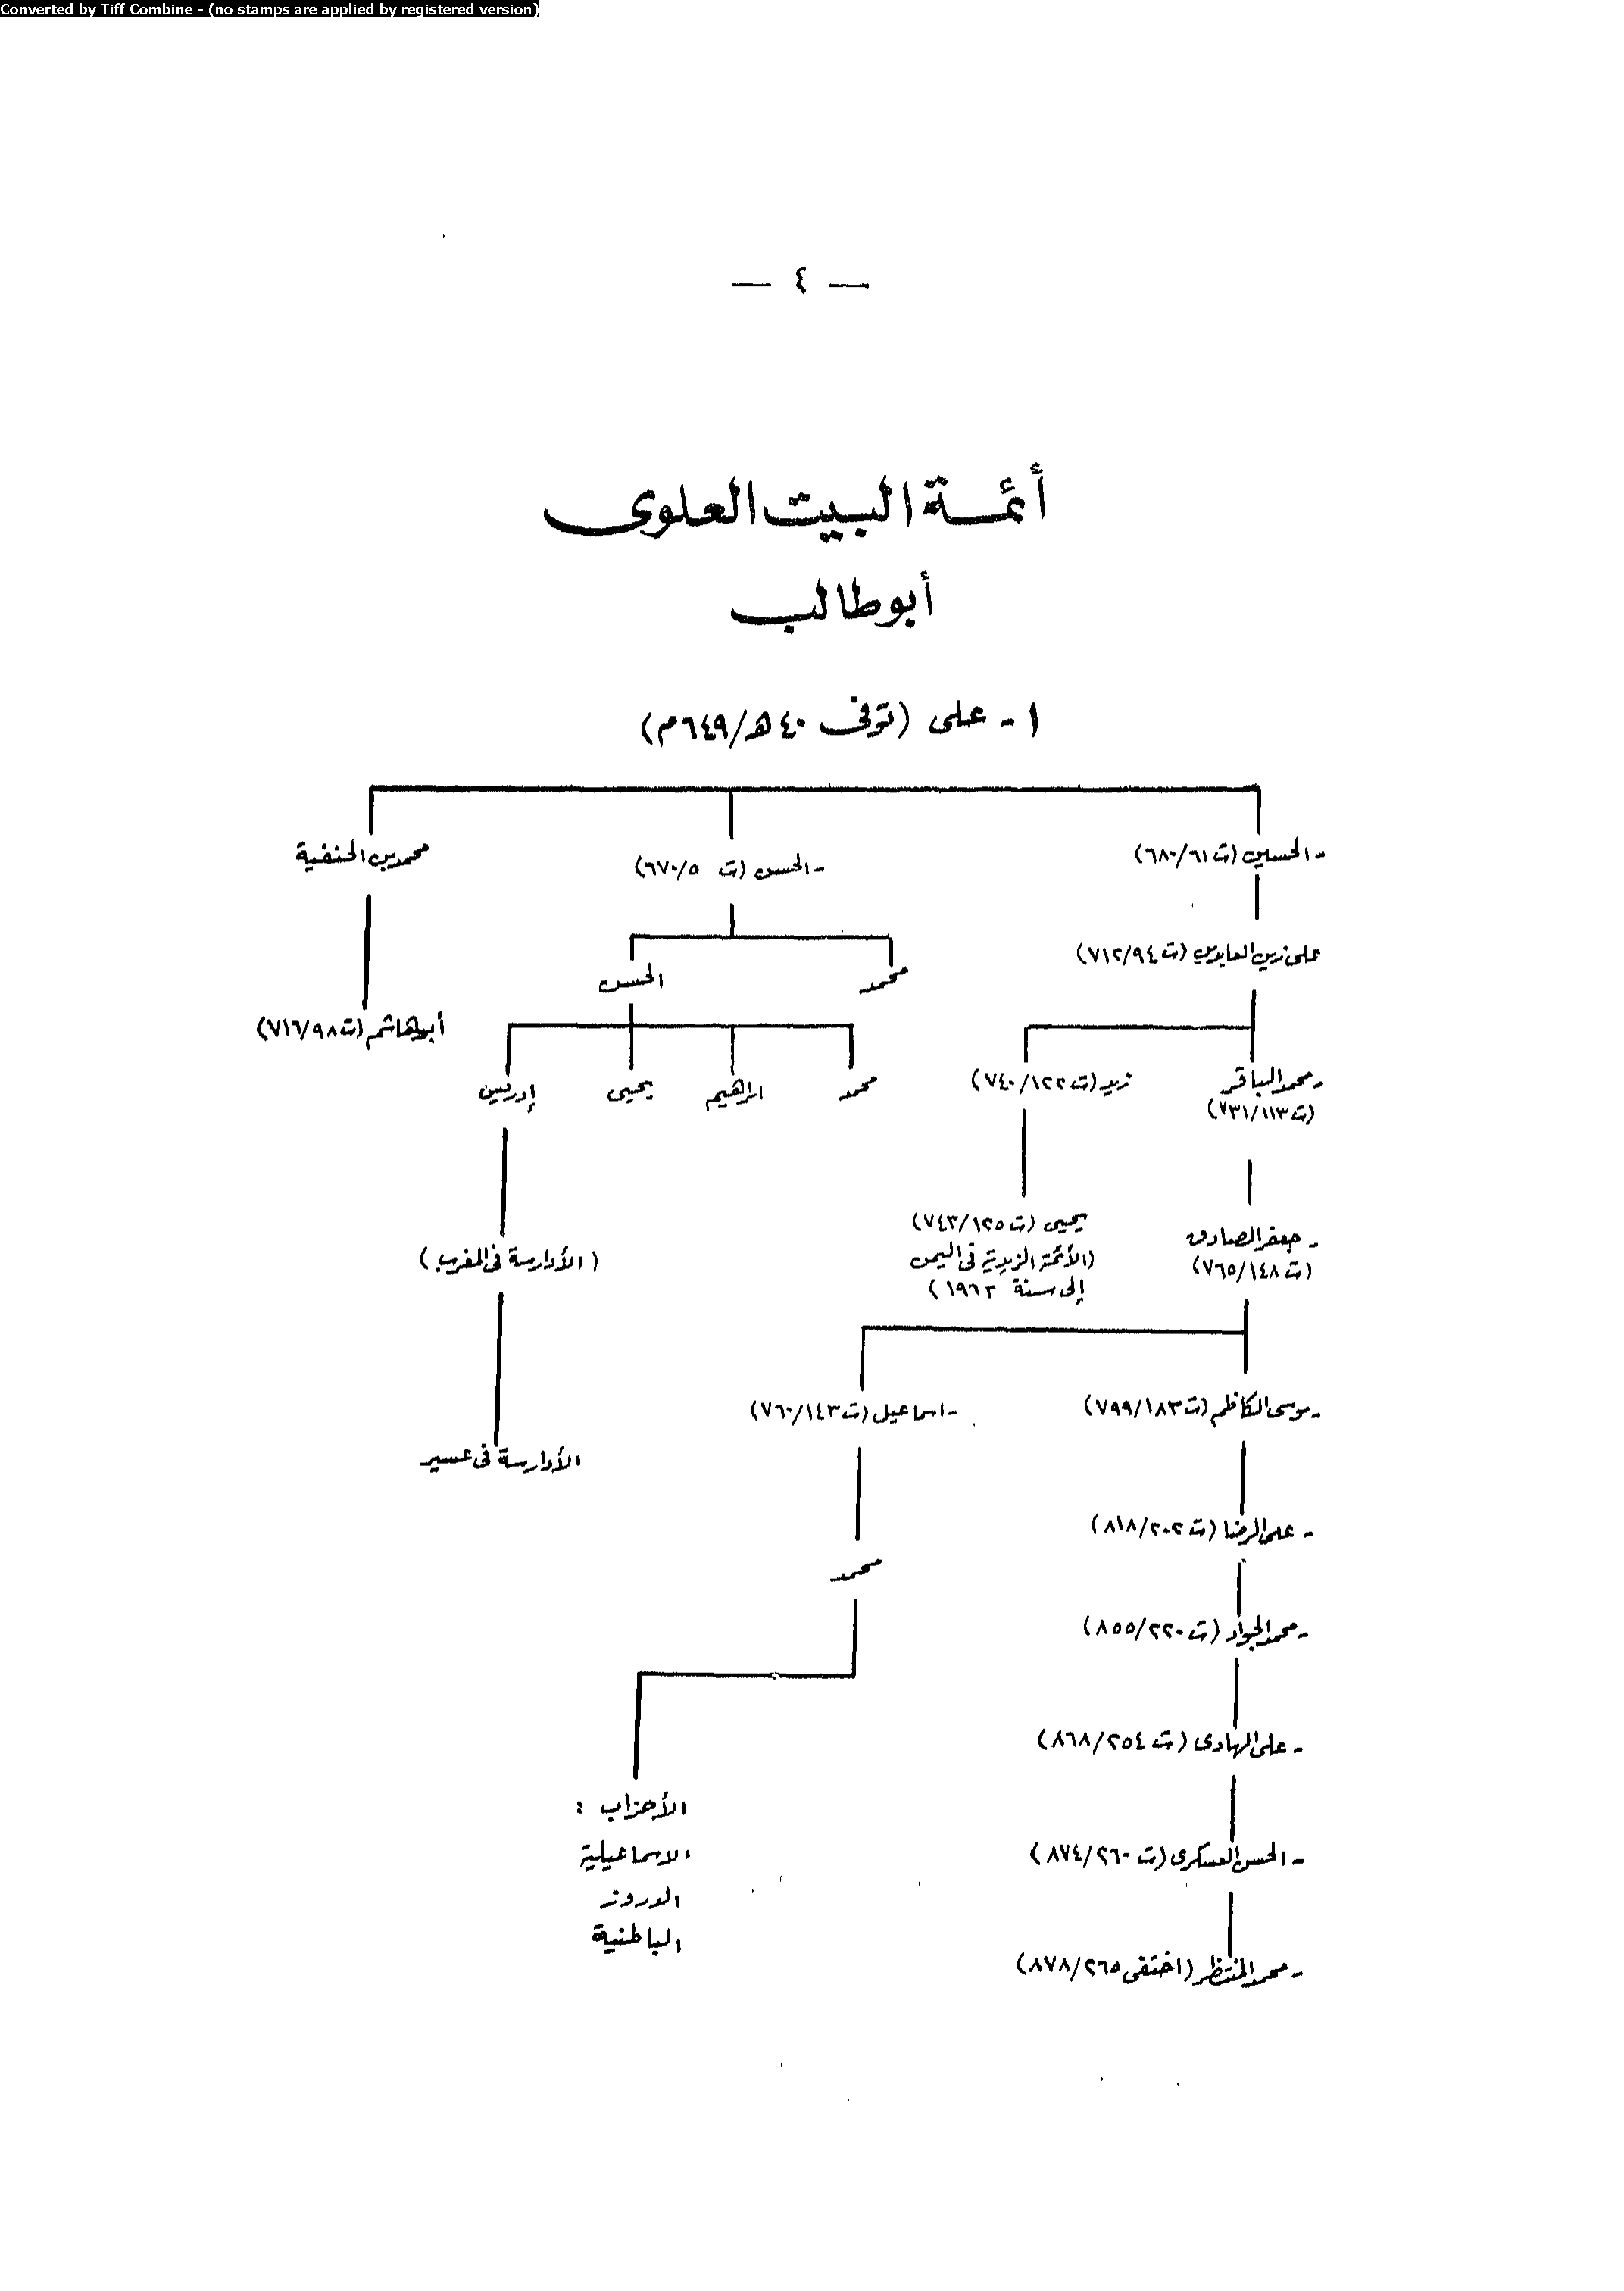 Converted by Tiff Combine - (no stamps are applied by registered version)
— ٤ —
أئمة البيت العلوى
أبو طالب
١ - على (توفى ٤٠ هـ/٦٤٩م)
- الحسين (ت ٦١/٦٨٠)
- الحسن (ت ٥/٦٧٠)
محمد بن الحنفية
على زين العابدين (ت ٩٤/٧١٢)
محمد
الحسن
أبو هاشم (ت ٩٨/٧١٦)
- محمد الباقر
(ت ١١٣/٧٣١)
زيد (ت ١٢٢/٧٤٠)
محمد
ابراهيم
يحيى
إدريس
- جعفر الصادق
(ت ١٤٨/٧٦٥)
يحيى (ت ١٢٥/٧٤٣)
(الأئمة الزيدية فى اليمن
إلى سنة ١٩٦٢)
(الأدارسة فى المغرب)
- موسى الكاظم (ت ١٨٣/٧٩٩)
- اسماعيل (ت ١٤٣/٧٦٠)
الأدارسة فى عسير
- على الرضا (ت ٢٠٢/٨١٨)
محمد
- محمد الجواد (ت ٢٢٠/٨٥٥)
- على الهادى (ت ٢٥٤/٨٦٨)
الأحزاب :
الاسماعيلية
الدروز
الباطنية
- الحسن العسكرى (ت ٢٦٠/٨٧٤)
- محمد المنتظر (اختفى ٢٦٥/٨٧٨)